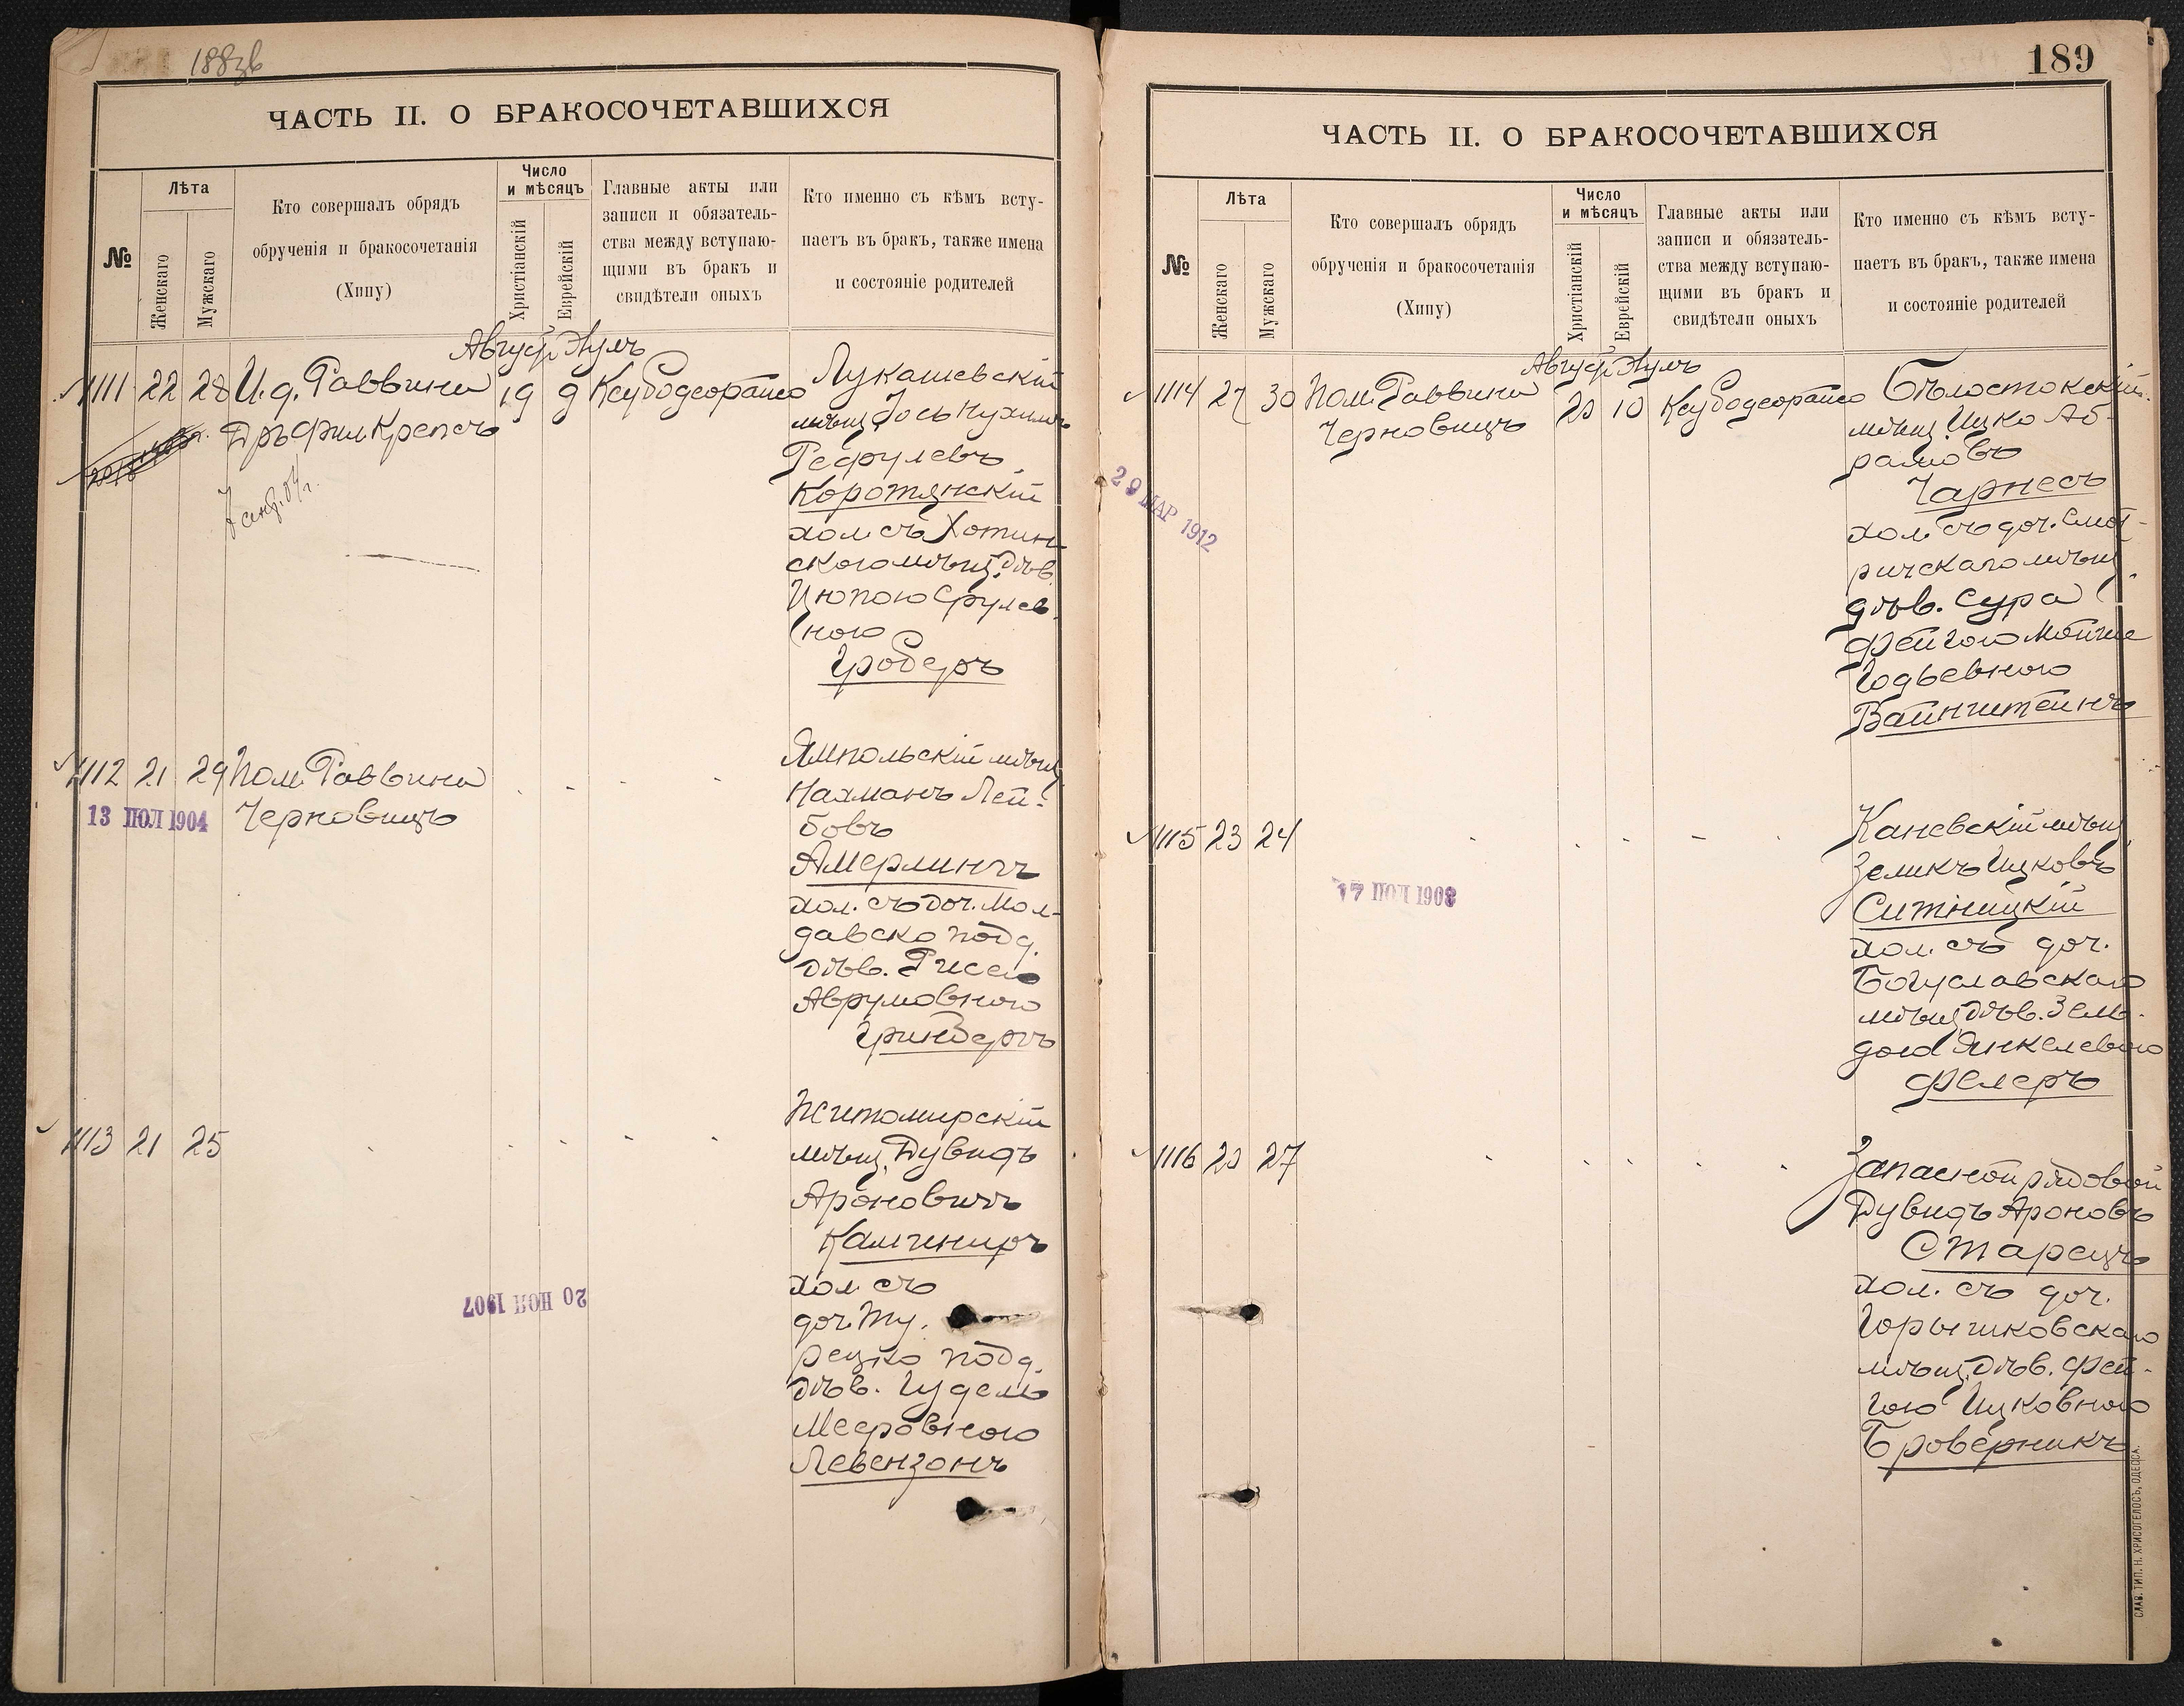 188зв
ЧАСТЬ II. О БРАКОСОЧЕТАВШИХСЯ
№
Лѣта
Женскаго
Мужскаго
Кто совершалъ обрядъ
обрученія и бракосочетанія
(Хипу)
Число
и мѣсяцъ
Христіанскій
Еврейскій
Главные акты или
записи и обязатель-
ства между вступаю-
щими въ бракъ и
свидѣтели оныхъ
Кто именно съ кѣмъ всту-
паетъ въ бракъ, также имена
и состояніе родителей
Август. Элулъ
1111 22 28 И.д. Раввина 19 9
Дръ Фил. Крепсъ
Лукашевскій
мѣщ. Іось Нухим
Коротянскій
хол. съ Хотин
скою мѣщ. дѣв.
Цюпою Срулев
ною
Гроберъ
1112 21 29 Пом. Раввина
Черновицъ
13 ІЮЛ 1904
Ямпольскій мѣщ.
Нахманъ Лей-
бовъ
Амерлингъ
хол. съ доч. Мол-
давско подд.
дѣв. Рисею
Аврумовною
Гринбергъ
1113 21 25
20 НОЯ 1907
Житомирскій
мѣщ. Дувидъ
Ароновичъ
Камениръ
хол. съ
доч. Ту-
рецко подд.
дѣв. Гудель
Мееровною
Левензонъ
189
ЧАСТЬ II. О БРАКОСОЧЕТАВШИХСЯ
№
Лѣта
Женскаго
Мужскаго
Кто совершалъ обрядъ
обрученія и бракосочетанія
(Хипу)
Число
и мѣсяцъ
Христіанскій
Еврейскій
Главные акты или
записи и обязатель-
ства между вступаю-
щими въ бракъ и
свидѣтели оныхъ
Кто именно съ кѣмъ всту-
паетъ въ бракъ, также имена
и состояніе родителей
Август. Элулъ
1114 27 30 Пом. Раввина 20 10
Черновицъ
29 МАР 1912
Бѣлостокскій
мѣщ. Ицко Аб-
рамовъ
Чарнесъ
хол. съ доч. Смот-
ричскаго мѣщ.
дѣв. Сура
Фейгою Мойше
Годьевною
Вайнштейнъ
1115 23 24
17 ІЮЛ 1908
Каневскій мѣщ.
Зеликъ Ицковъ
Ситницкій
хол. съ доч.
Богуславскаго
мѣщ. дѣв. Зель-
дою Янкелевною
Фелеръ
1116 20 27
Запасной рядовой
Дувидъ Ароновъ
Старецъ
хол. съ доч.
Горышковскаго
мѣщ. дѣв. Фей-
гою Ицковною
Броверникъ
СЛАВ. ТИП. Н. ХРИСОГЕЛОСЪ, ОДЕССА.